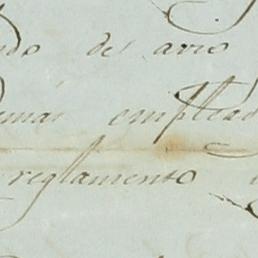 ndo del arro
emas emplead
reglamento